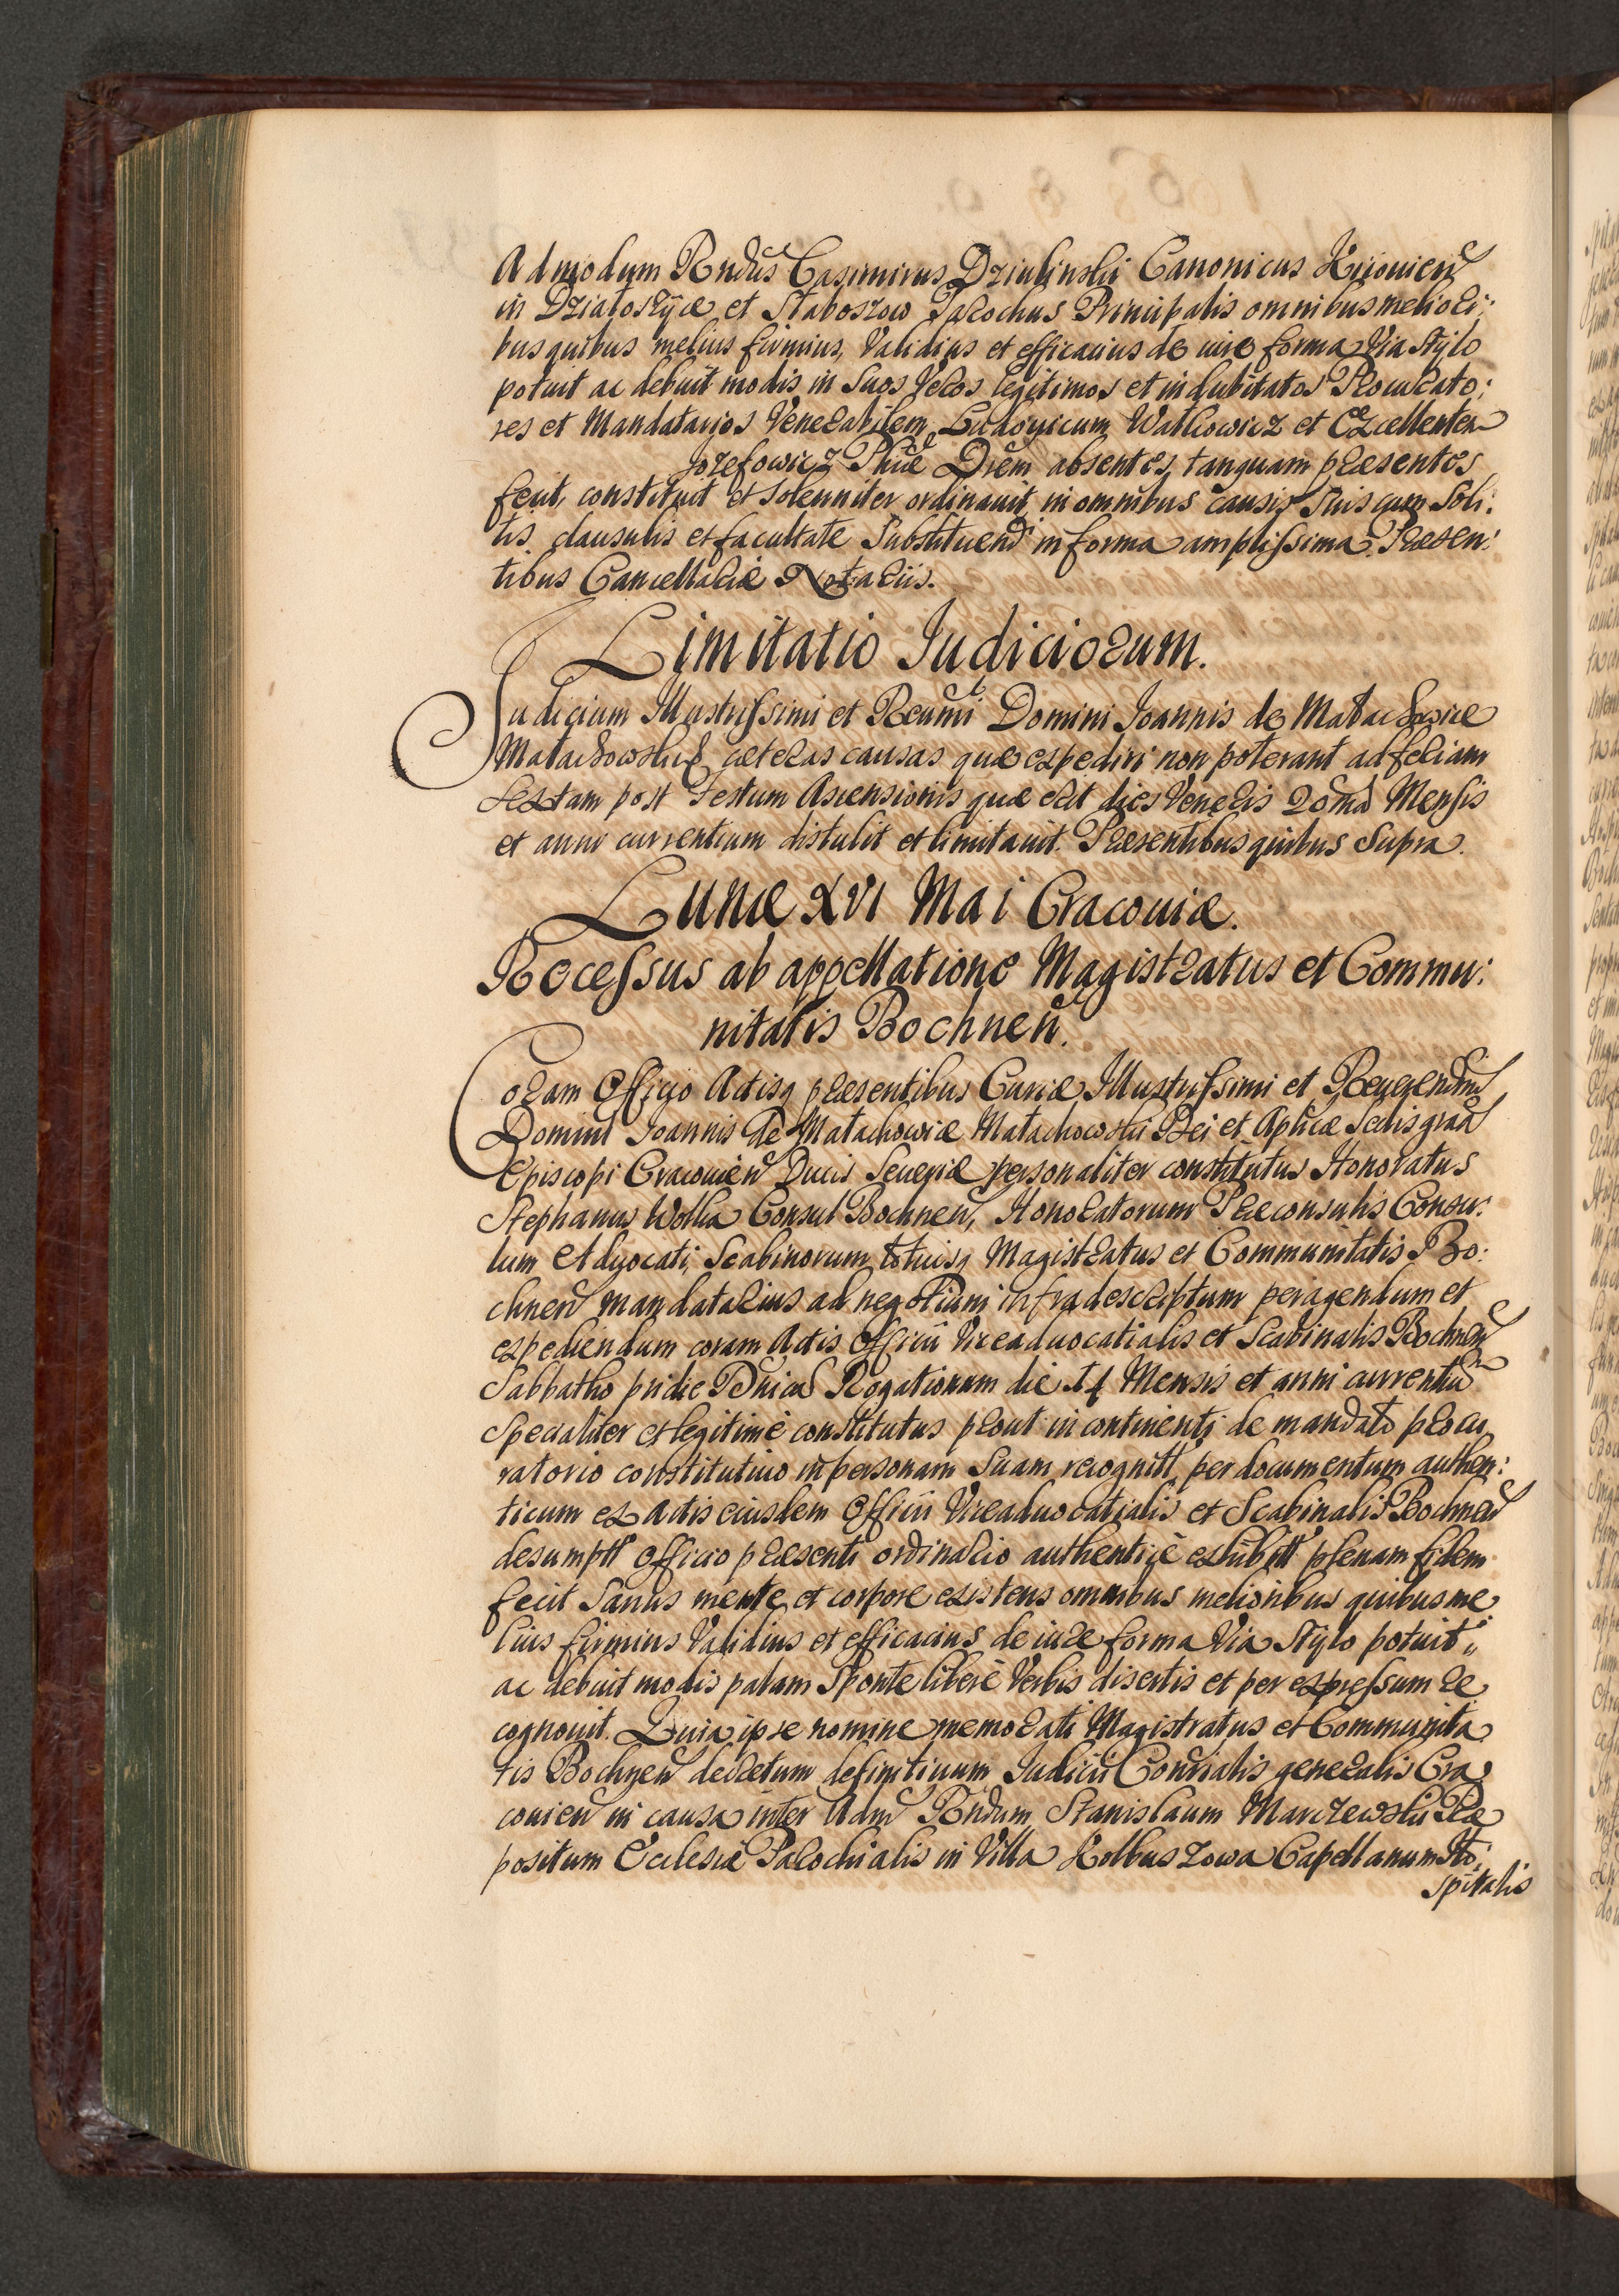 Admodum Rndus Casimirus Dziulinski Canonicus Kijouien
in Działoszyce et Słaboszow Parochus Principalis omnibus meliori:
bus quibus melius firmius, Validius et efficacius de iure forma Via Stylo
potuit ac debuit modis in Suos Veros legitimos et indubitatos Procurato:
res et Mandatarios Venerabilem Ludovicum Watkowicz et Excellenten
Jozefowicz Phiæ Drem absentes, tanquam præsentes
fecit, constituit et Solenniter ordinauit, in omnibus causis Suis cum Soli:
tis clausulis et facultate Substituendi in forma amplissima. Præsen:
tibus Cancellariæ Notariis.
Limitatio Judiciorum.
Judicium Illustrissimi et Reumi Domini Joannis de Małachowice
Małachowski cæteras causas quæ expediri non poterant ad feriam
Sextam post Festum Ascensionis quæ erit dies Veneris 20ma Mensis
et anni currentium distulit et limitauit. Præsentibus quibus Supra.
Lunæ XVI Mai Cracouiæ.
Recessus ab appellatione Magistratus et Commu:
nitatis Bochnen.
Coram Officio Actisq præsentibus Curiæ Illustrissimi et Reuerendmi
Domini Joannis de Małachowice Małachowski Dei et Aplicæ Sedis graa
Episcopi Cracouien Ducis Seueriæ personaliter constitutus Honoratus
Stephanus Wolka Consul Bochnen, Honoratorum Præconsulis Consu:
lum Aduocati, Scabinorum totiusq Magistratus et Communitatis Bo:
chnen mandatarius ad negotium infradescriptum peragendum et
expediendum coram Actis Officii Viceaduocatialis et Scabinalis Bochnen
Sabbatho pridie Dnicæ Rogationum die 14 Mensis et anni currentium
Specialiter et legitimè constitutus prout in continenti de mandato procu
ratorio constitutiuo in personam Suam recognitt, per documentum authen:
ticum ex Actis eiusdem Officii Viceaduocatialis et Scabinalis Bochnen
desumptt Officio præsenti ordinario authenticè exhibitt plenam fidem
fecit Sanus mente et corpore existens omnibus melioribus quibus me
lius firmius Validius et efficacius de iure forma Via Stylo potuit
ac debuit modis palam Sponte liberè Verbis disertis et per expressum re
cognouit. Quia ipse nomine memorati Magistratus et Communita
tis Bochnen decretum definitiuum Judicii Consialis generalis Cra
couien in causa inter Adm Rndum Stanislaum Marczewski Præ
positum Ecclesiæ Parochialis in Villa Kolbuszowa Capellanum Ho:
spitalis